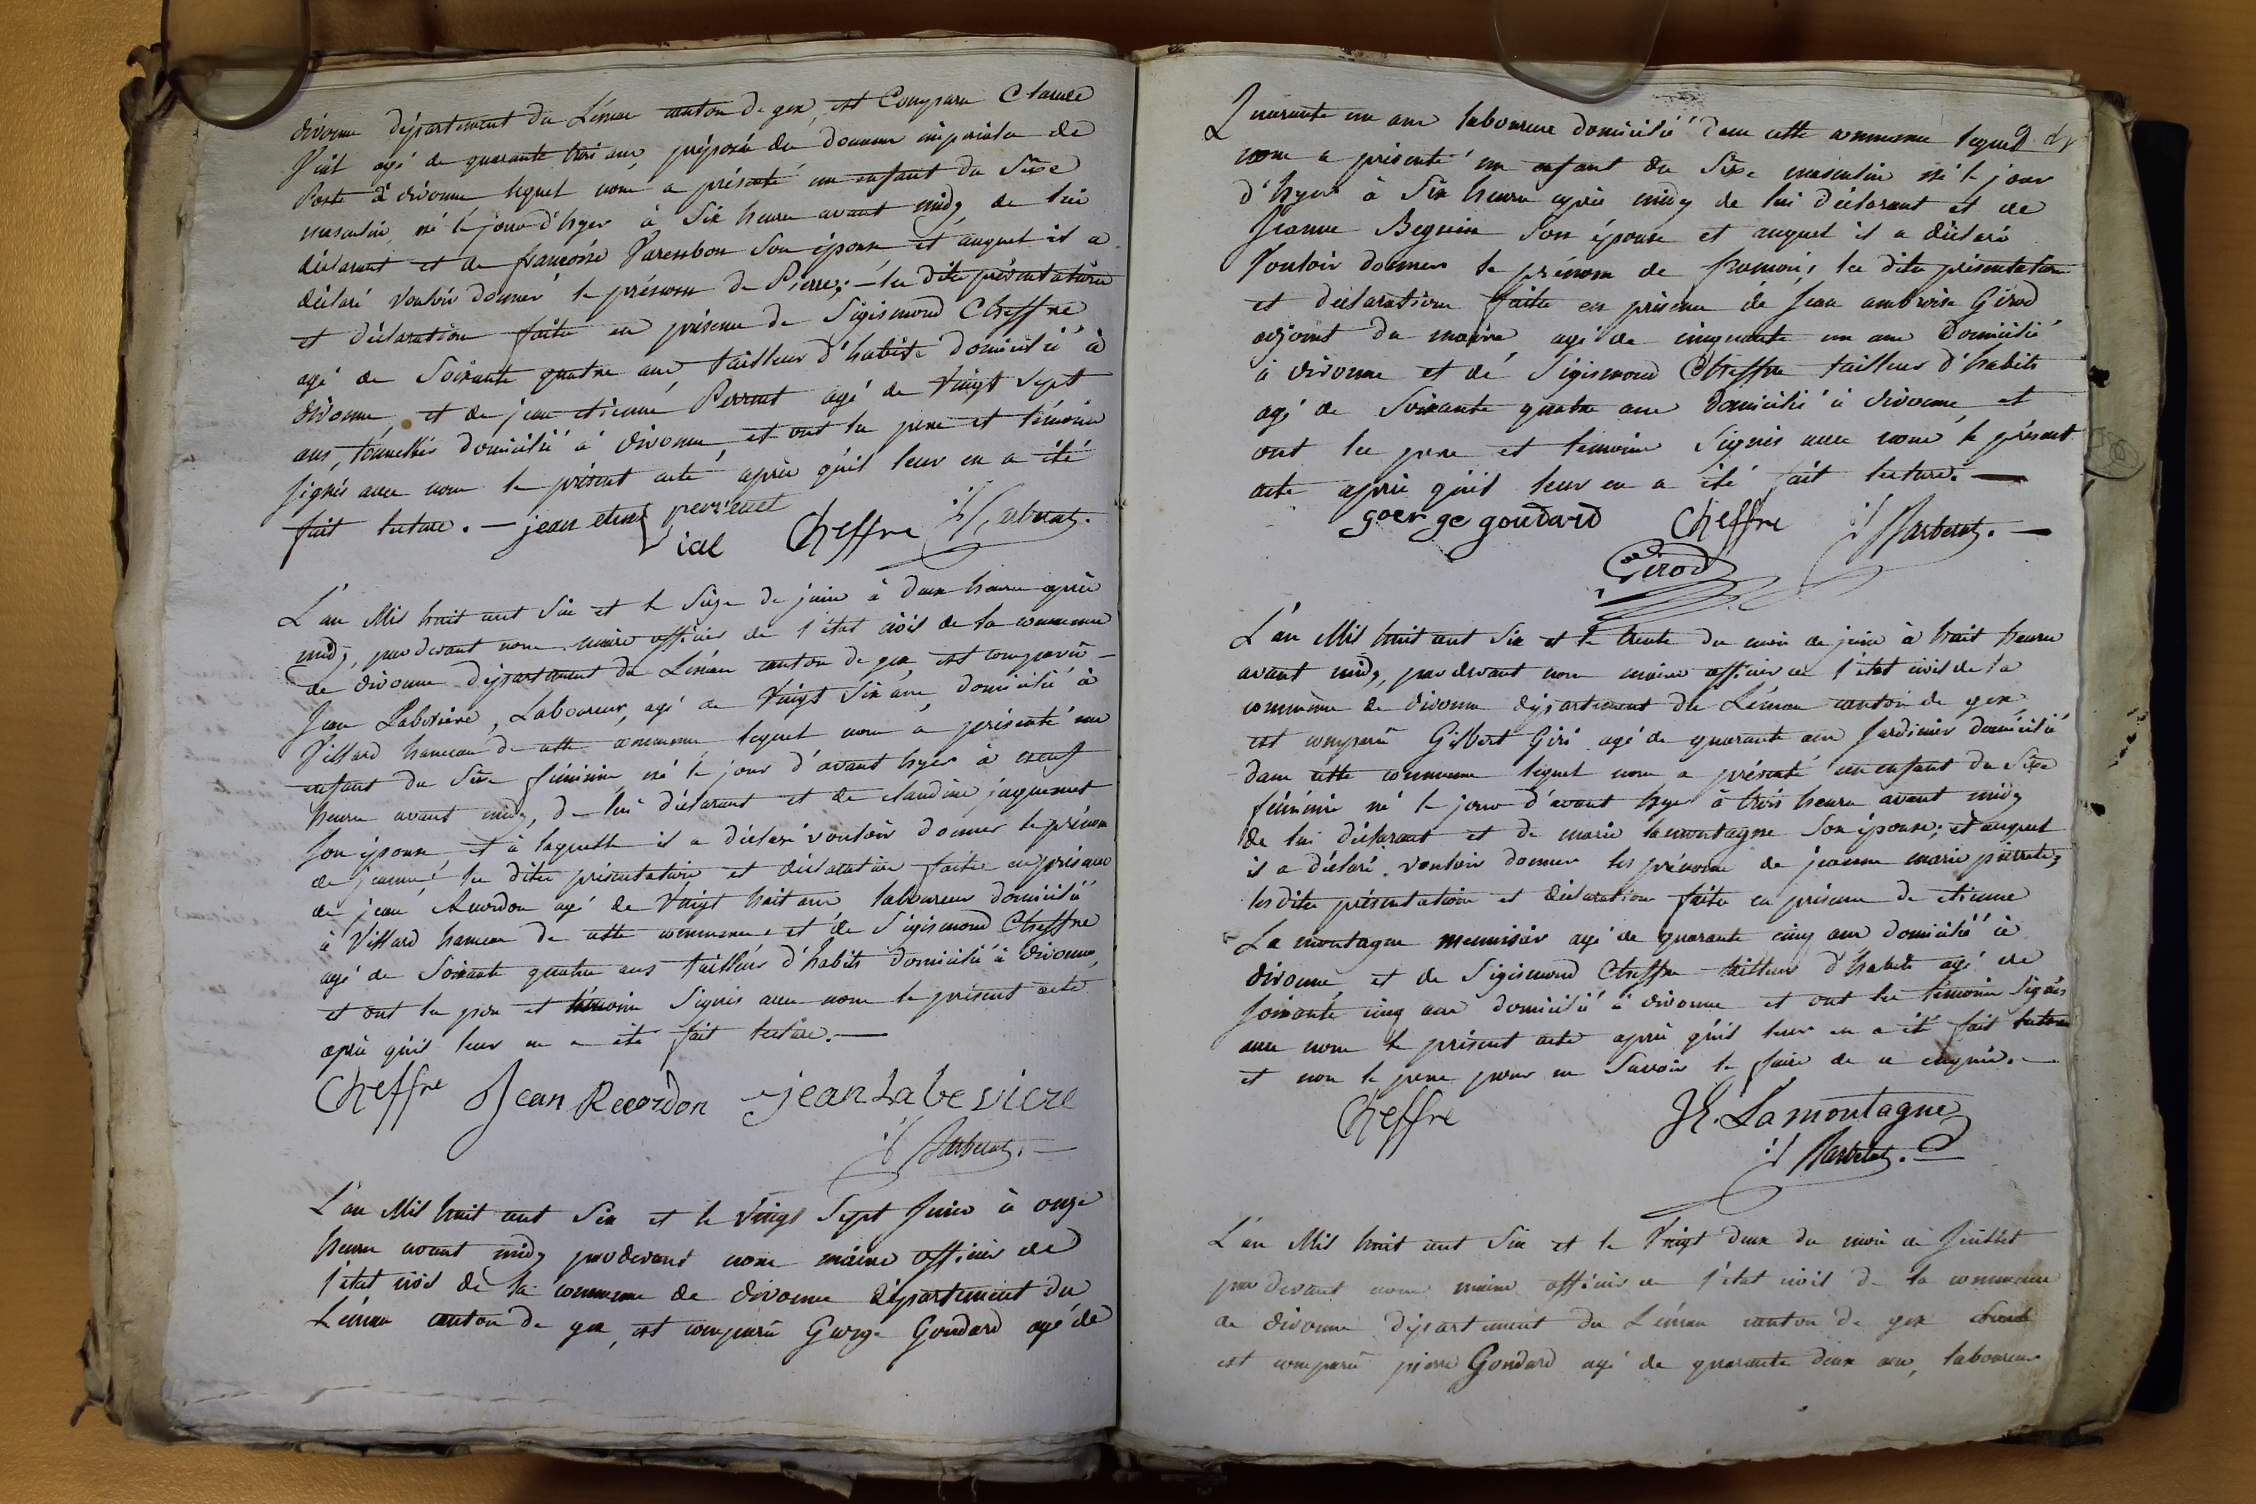 divonne département du Léman canton de gex, est Comparu Claude
Vial agé de quarante trois ans préposé des douanes impériales de
Poste à divonne lequel nous a présenté un enfant du Sexe
masculin, né le jour d'hyer à Six heures avant midy, de lui
déclarant et de françoise Varembon Son épouse et auquel il a
déclaré vouloir donner le prénom de Pierre; – les dites présentation
et déclaration faites en présence de Sigismond Cheffre
agé de Soixante quatre ans tailleur d'habits domicilié à
divonne, et de jean etienne Perruet agé de vingt Sept
ans, tonnellier domicilié à divonne et ont les pere et témoins
Signés avec nous le présent acte après qu'il leur en a été
fait lecture. — jean etien perruet
Vial Cheffre Barberat.
L'an Mil huit cent Six et le Seize de juin à deux heures après
midy, par devant nous maire officier de l'état civil de la commune
de divonne département du Léman canton de gex est comparu
Jean Labeviere, Laboureur, agé de vingt Six ans, domicilié à
Villard hameau de cette commune lequel nous a présenté un
enfant du Sexe féminin né le jour d'avant hyer à neuf
heures avant midy, de lui déclarant et de claudine jaquemet
Son épouse, et à laquelle il a déclaré vouloir donner le prénom
de jeanne les dites présentation et déclaration faites en présence
de jean Recordon agé de vingt huit ans laboureur domicilié
à Villard hameau de cette commune, et de Sigismond Cheffre
agé de Soixante quatre ans tailleur d'habits domicilié à divonne,
et ont les pere et témoins Signés avec nous le présent acte
après qu'il leur en a été fait lecture. —
Cheffre Jean Recordon jean Labeviere
Barberat. —
L'an Mil huit cent Six et le vingt Sept Juin à onze
heures avant midy par devant nous maire officier de
l'état civil de la commune de divonne département du
Léman canton de gex, est comparu George Goudard agé de
Quarante un ans laboureur domicilié dans cette commune lequel
nous a présenté un enfant du Sexe masculin né le jour
d'hyer à Six heures après midy de lui déclarant et de
Jeanne Beguin Son épouse et auquel il a déclaré
Vouloir donner le prénom de francois, les dites présentation
et déclaration faites en présence de Jean ambroise Girod
adjoint du maire, agé de cinquante un ans domicilié
à divonne et de Sigismond Cheffre tailleur d'habits
agé de Soixante quatre ans domicilié à divonne, et
ont les pere et témoins Signés avec nous le présent
acte après qu'il leur en a été fait lecture. —
goerge goudard Cheffre Barberat. —
Girod
L'an Mil huit cent Six et le trente du mois de juin à huit heures
avant midy, par devant nous maire officier de l'état civil de la
commune de divonne département du Léman canton de gex,
est comparu Gilbert Giri agé de quarante ans Jardinier domicilié
dans cette commune lequel nous a présenté un enfant du Sexe
féminin né le jour d'avant hyer à trois heures avant midy
de lui déclarant et de marie lamontagne Son épouse; et auquel
il a déclaré vouloir donner les prénoms de jeanne marie pierrette,
les dites présentation et déclaration faites en présence de etienne
La montagne menuisier agé de quarante cinq ans domicilié à
divonne et de Sigismond Cheffre tailleur d'habits agé de
Soixante cinq ans domicilié à divonne et ont les témoins Signés
avec nous le présent acte après qu'il leur en a été fait lecture
et non le pere pour ne Savoir le faire de ce enquis. —
Cheffre La montagne
Barberat.
L'an Mil huit cent Six et le Vingt deux du mois de Juillet
par devant nous maire officier de l'état civil de la commune
de divonne département du Léman canton de gex
est comparu pierre Goudard agé de quarante deux ans, laboureur